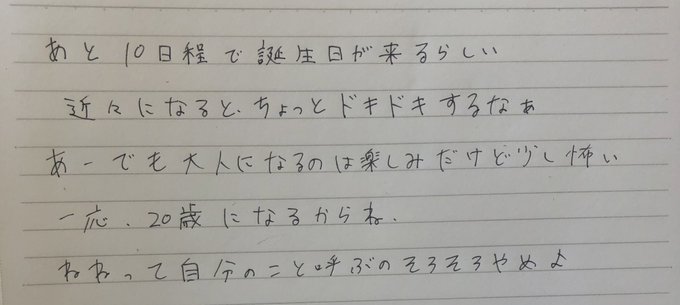 あと10日程で誕生日が来るらしい
近々になると、ちょっとドキドキするなぁ
あーでも大人になるのは楽しみだけど少し怖い
一応、20歳になるからね、
ねねって自分のこと呼ぶのそろそろやめよ